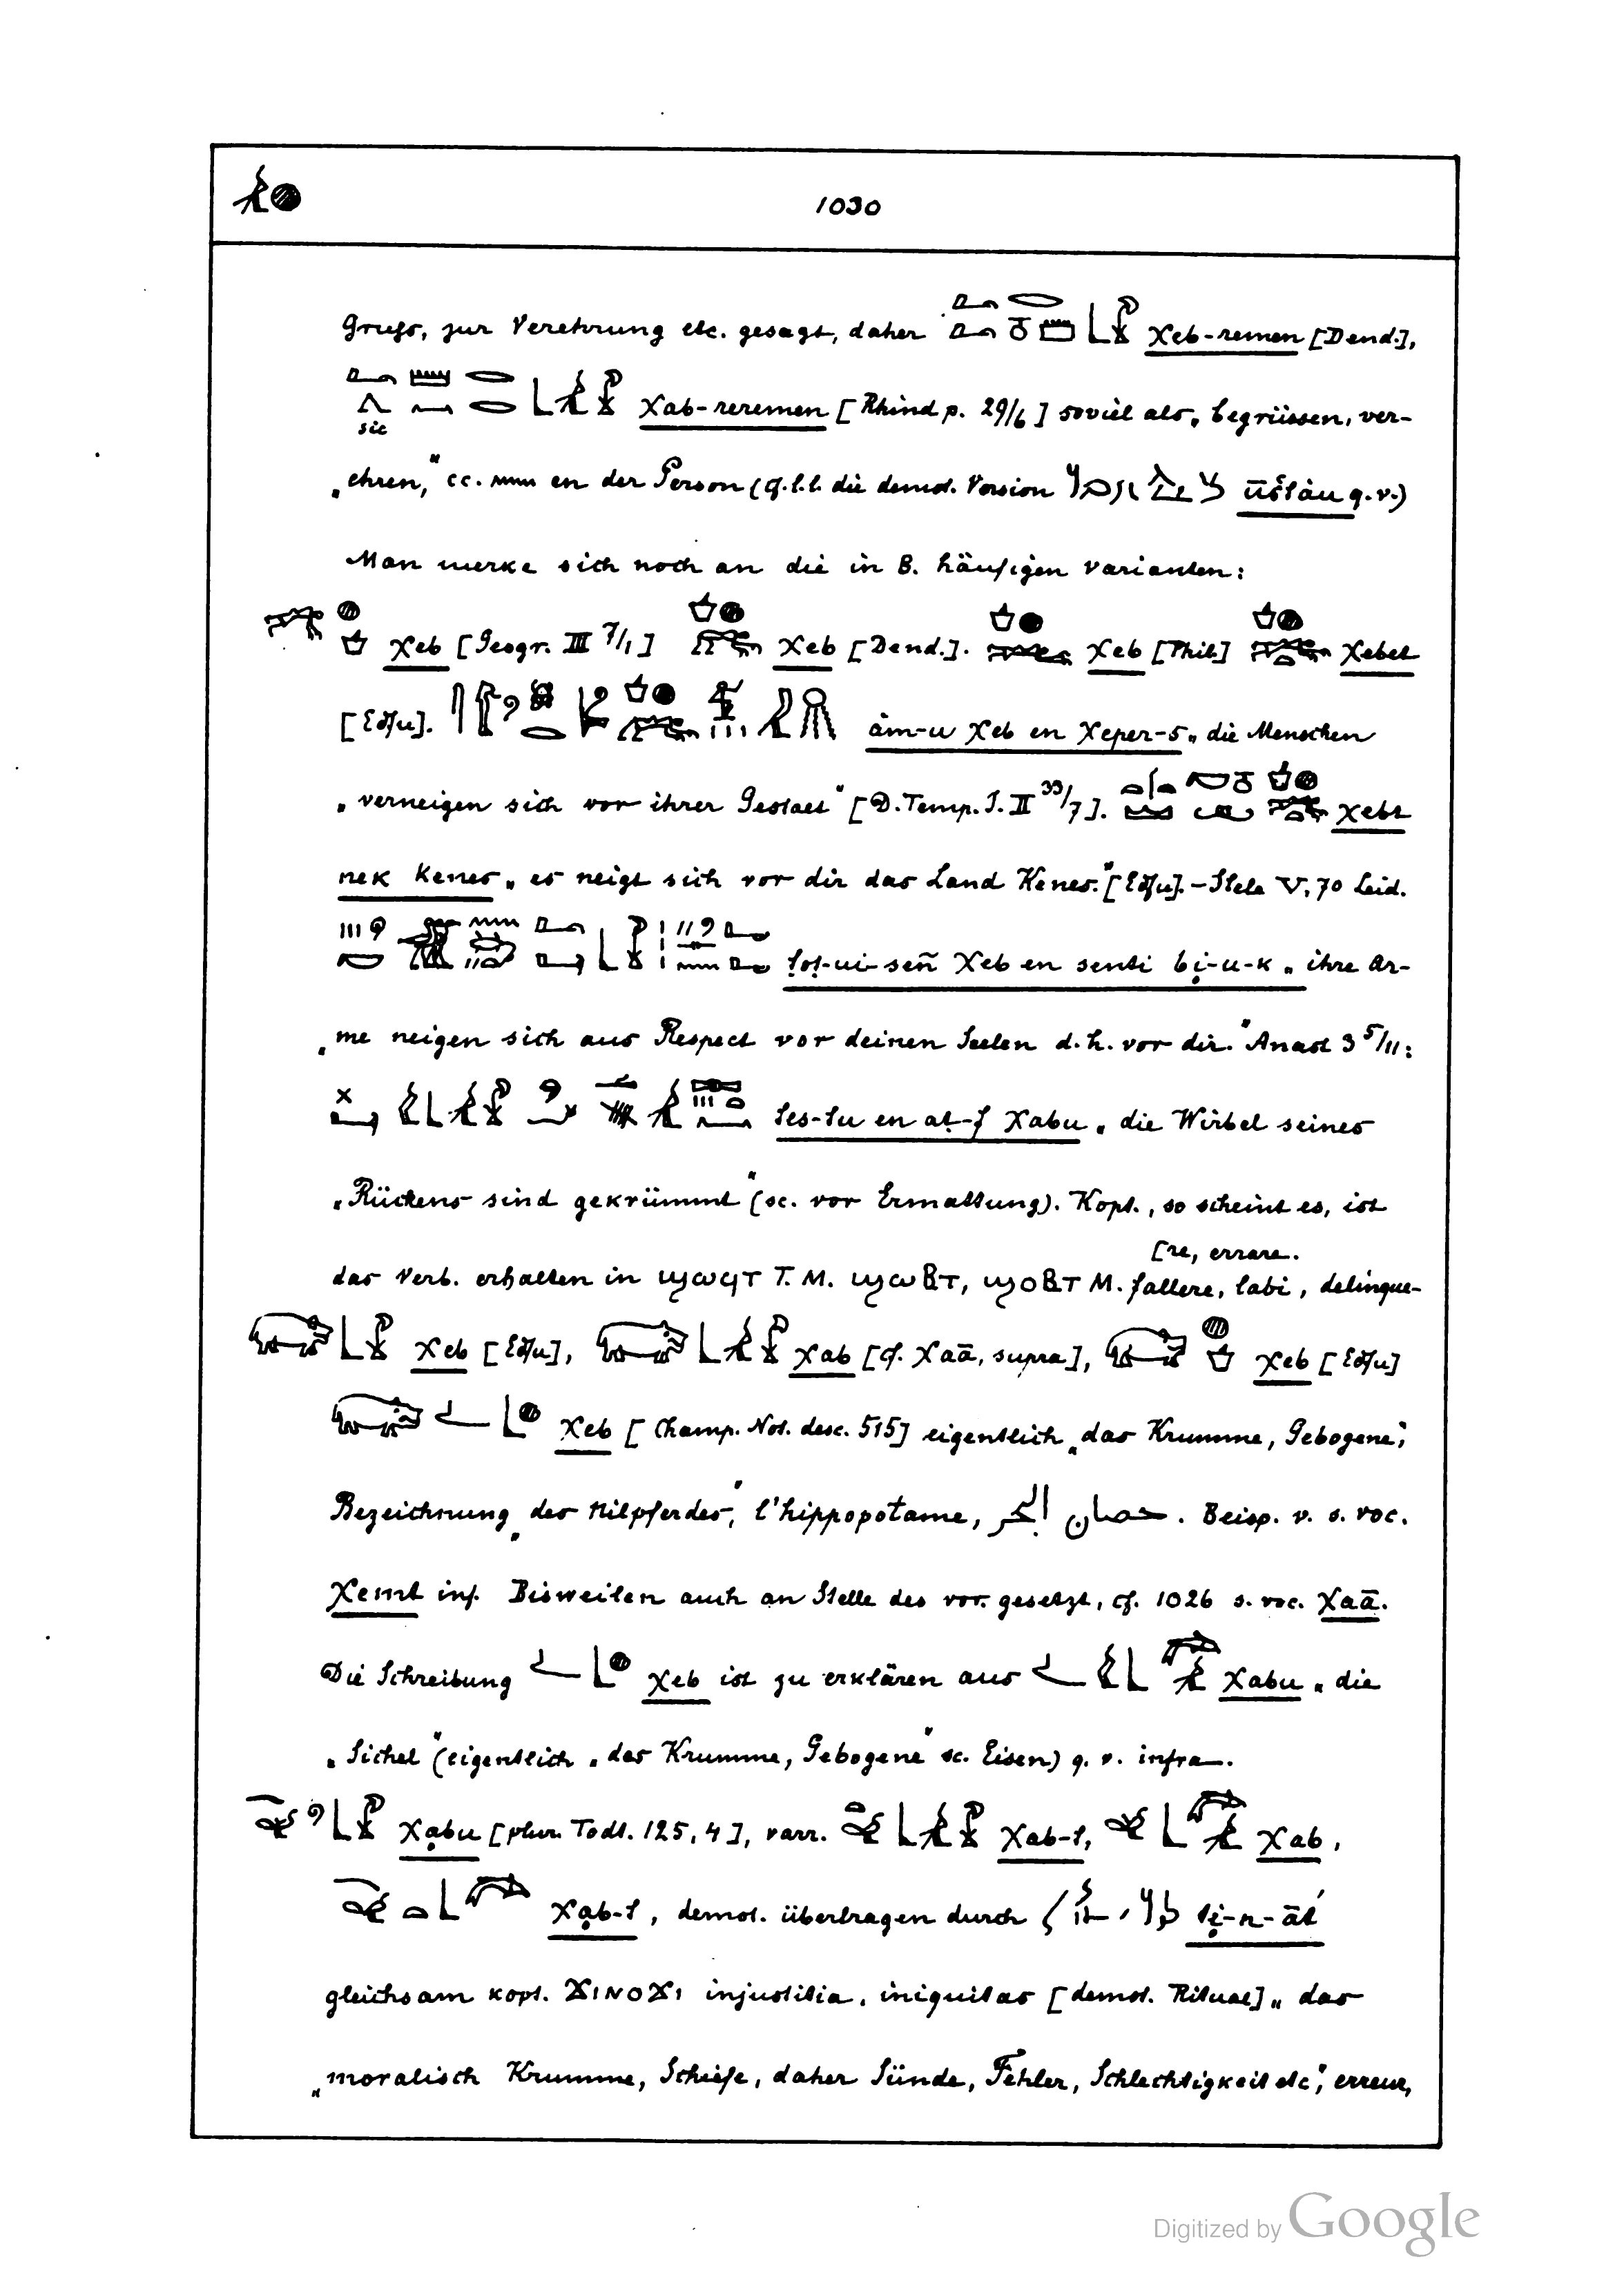 1030
Gruß, zur Verehrung etc. gesagt, daher χeb-remen [Dend.],
χab-reremen [Rhind p. 29/6] soviel als „begrüssen, ver-
sic
„ehren,“ cc. en der Person (q.l.l. die demot. Version q.v.)
Man merke sich noch an die in B. häufigen varianten:
χeb [Geogr. III 7/1] χeb [Dend.]. χeb [Phil] χebet
[Edfu]. àm-u χeb en χeper-s „die Menschen
„verneigen sich vor ihrer Gestalt“ [D. Temp. I. II 33/7]. χebt
nek Kenes „es neigt sich vor dir das Land Kenes.“ [Edfu]. – Stele V, 70 Leid.
χeb en senti bi̭-u-k „ihre Ar-
„me neigen sich aus Respect vor deinen Seelen d.h. vor dir.“ Anast 3 5/11:
tes-tu en at-f χabu „die Wirbel seines
„Rückens sind gekrümmt“ (sc. vor Ermattung). Kopt., so scheint es, ist
[re, errare.
das Verb. erhalten in ϣωϥⲧ T. M. ϣωⲃⲧ, ϣⲟⲃⲧ M. fallere, labi, delinque-
χeb [Edfu], χab [cf. χaā, supra], χeb [Edfu]
χeb [Champ. Not. desc. 515] eigentlich „das Krumme, Gebogene“,
Bezeichnung „des Nilpferdes“, l'hippopotame, حصان البحر. Beisp. v. s. voc.
χemt inf. Bisweilen auch an Stelle des vor. gesetzt, cf. 1026 s. voc. χaā.
Die Schreibung χeb ist zu erklären aus χabu „die
„Sichel“ (eigentlich „das Krumme, Gebogene“ sc. Eisen) q. v. infra.
χabu [plur. Todt. 125, 4], varr. χab-t, χab,
χab-t, demot. übertragen durch
gleichsam kopt. ϪⲓⲛⲟϪⲓ injustitia, iniquitas [demot. Ritual] „das
„moralisch Krumme, Schiefe, daher Sünde, Fehler, Schlechtigkeit etc“, erreur,
Digitized by Google